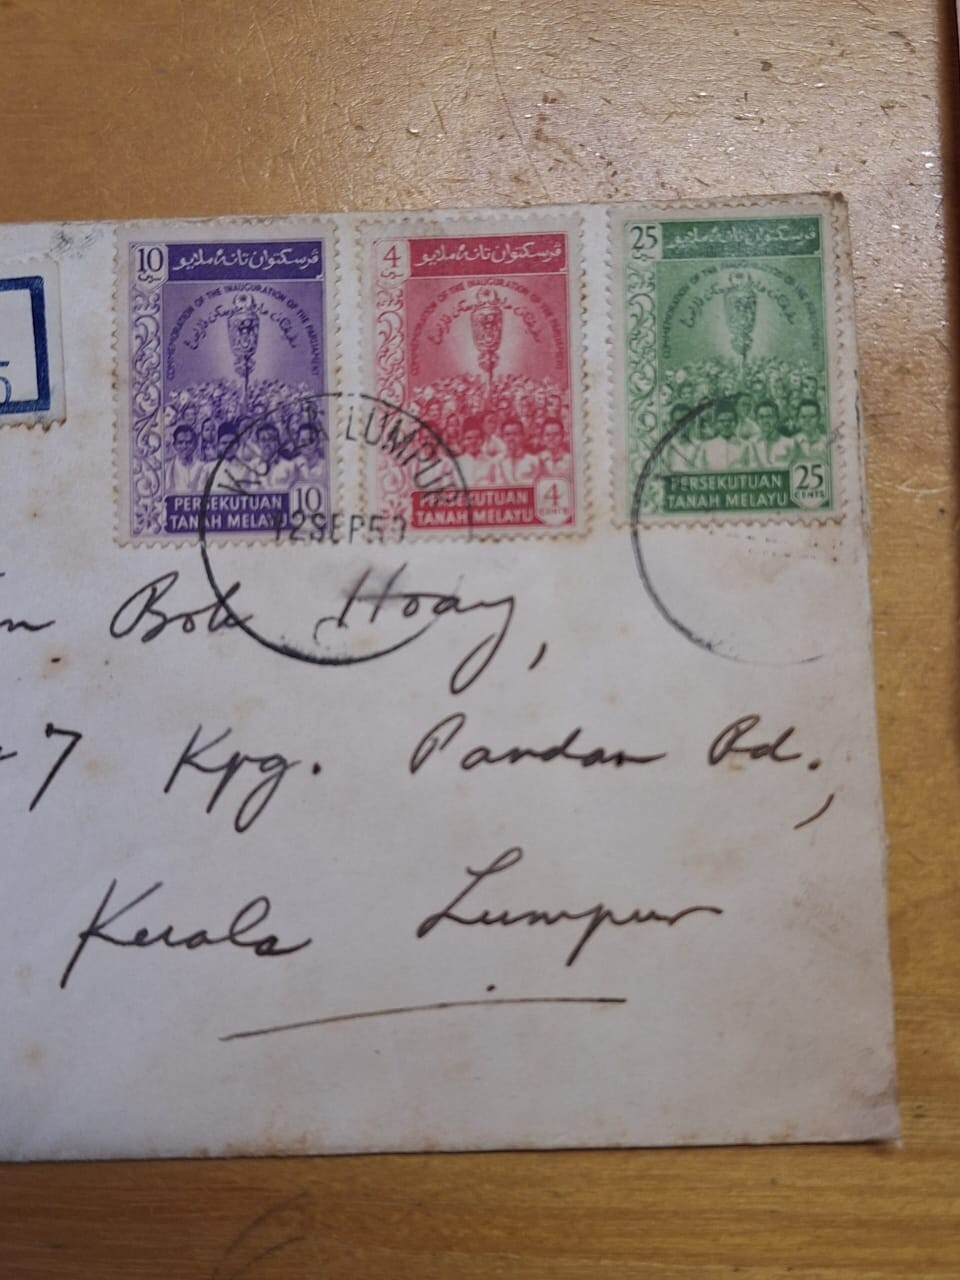 5
10
سين
ڤرسكتوان تانه ملايو
COMMEMORATION OF THE INAUGURATION OF THE PARLIAMENT
PERSEKUTUAN
TANAH MELAYU
10
4
سين
ڤرسكتوان تانه ملايو
COMMEMORATION OF THE INAUGURATION OF THE PARLIAMENT
PERSEKUTUAN
TANAH MELAYU
4
CENTS
25
سين
ڤرسكتوان تانه ملايو
COMMEMORATION OF THE INAUGURATION OF THE PARLIAMENT
PERSEKUTUAN
TANAH MELAYU
25
CENTS
KUALA LUMPUR
12 SEP 59
Bok Hoay,
7 Kpg. Pandan Rd.,
Kuala Lumpur